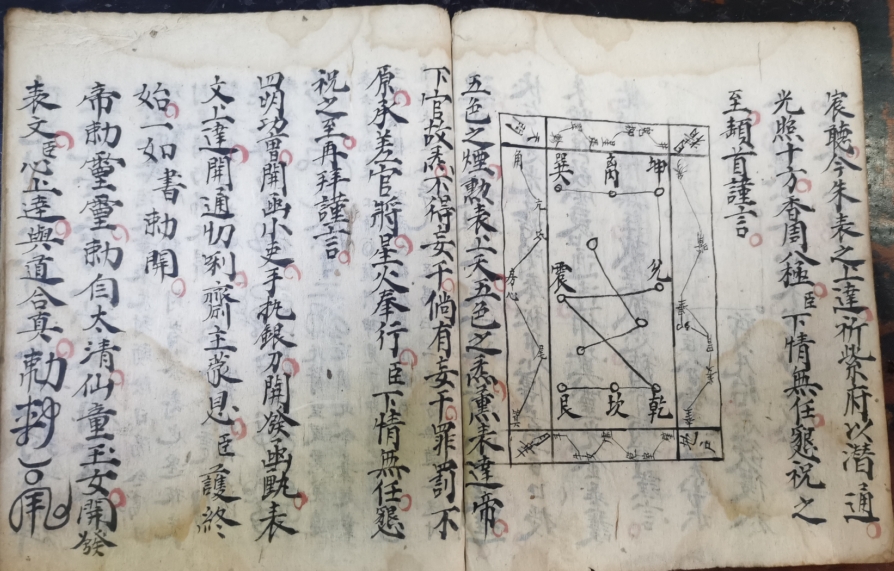 宸聽今朱表之上達祈紫府以潛通
光照十方香周八極臣下情無任懇祝之
至頓首謹言
坤
离
巽
兌
震
乾
坎
艮
角
亢
氐
房
心
尾
箕
五色之煙勲表上天五色之炁熏表達帝
下官故炁不得妄干倘有妄干罪罰不
原承差官將星火奉行臣下情無任懇
祝之至再拜謹言
四明功曹開函小吏手执銀刀開發函㽎表
文上達開通切到齋主蒙恩臣護終
始一如書勅開
帝勅靈靈勅自太清仙童玉女開發
表文臣心上達與道合真勅